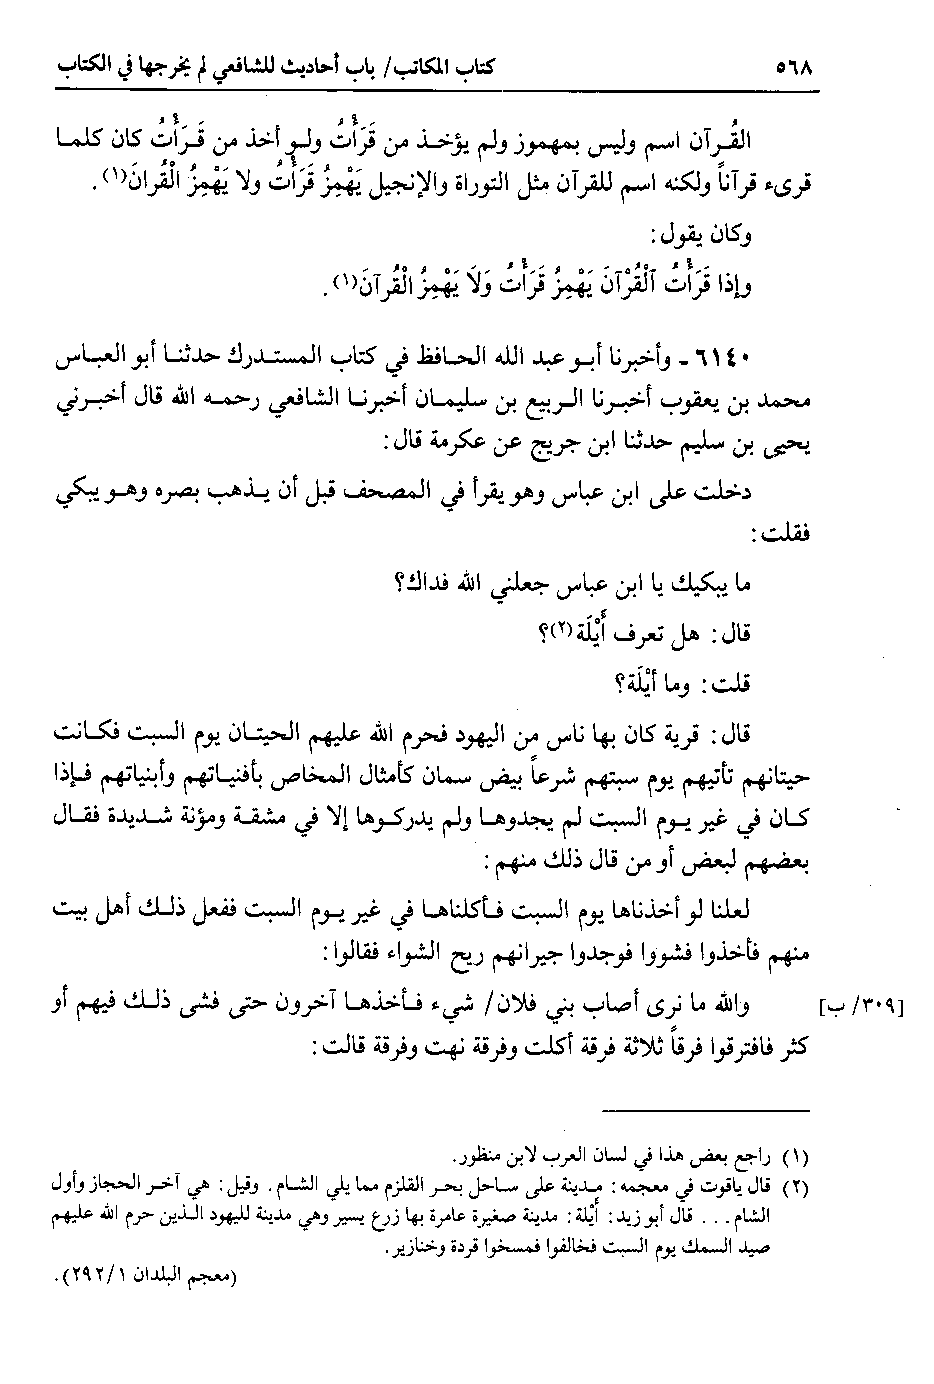 ٥٦٨ كتاب المكاتب/ باب أحاديث للشافعي لم يخرجها في الكتاب
القُرآن اسم وليس بمهموز ولم يؤخذ من قَرَأْتُ ولو أخذ من قَرَأْتُ كان كلما
قرىء قرآناً ولكنه اسم للقرآن مثل التوراة والإنجيل يَهْمِزُ قَرَأْتُ ولا يَهْمِزُ الْقُرانَ(١).
وكان يقول:
وإذا قَرَأْتُ ٱلْقُرْآنَ يَهْمِزُ قَرَأْتَ وَلاَ يَهْمِزُ الْقُرآنَ(١).
٦١٤٠ - وأخبرنا أبو عبد الله الحافظ في كتاب المستدرك حدثنا أبو العباس
محمد بن يعقوب أخبرنا الربيع بن سليمان أخبرنا الشافعي رحمه الله قال أخبرني
يحيى بن سليم حدثنا ابن جريج عن عكرمة قال:
دخلت على ابن عباس وهو يقرأ في المصحف قبل أن يذهب بصره وهو يبكي
فقلت:
ما يبكيك يا ابن عباس جعلني الله فداك؟
قال: هل تعرف أَيْلَة(٢)؟
قلت: وما أَيْلَة؟
قال: قرية كان بها ناس من اليهود فحرم الله عليهم الحيتان يوم السبت فكانت
حيتانهم تأتيهم يوم سبتهم شرعاً بيض سمان كأمثال المخاض بأفنياتهم وأبنياتهم فإذا
كان في غير يوم السبت لم يجدوها ولم يدركوها إلا في مشقة ومؤنة شديدة فقال
بعضهم لبعض أو من قال ذلك منهم:
لعلنا لو أخذناها يوم السبت فأكلناها في غير يوم السبت ففعل ذلك أهل بيت
منهم فأخذوا فشووا فوجدوا جيرانهم ريح الشواء فقالوا:
[٣٠٩/ ب] والله ما نرى أصاب بني فلان/ شيء فأخذها آخرون حتى فشى ذلك فيهم أو
كثر فافترقوا فرقاً ثلاثة فرقة أكلت وفرقة نهت وفرقة قالت:
(١) راجع بعض هذا في لسان العرب لابن منظور.
(٢) قال ياقوت في معجمه: مدينة على ساحل بحر القلزم مما يلي الشام. وقيل: هي آخر الحجاز وأول
الشام... قال أبو زيد: أَيلة: مدينة صغيرة عامرة بها زرع يسير وهي مدينة لليهود الذين حرم الله عليهم
صيد السمك يوم السبت فخالفوا فمسخوا قردة وخنازير.
(معجم البلدان ١/ ٢٩٢).